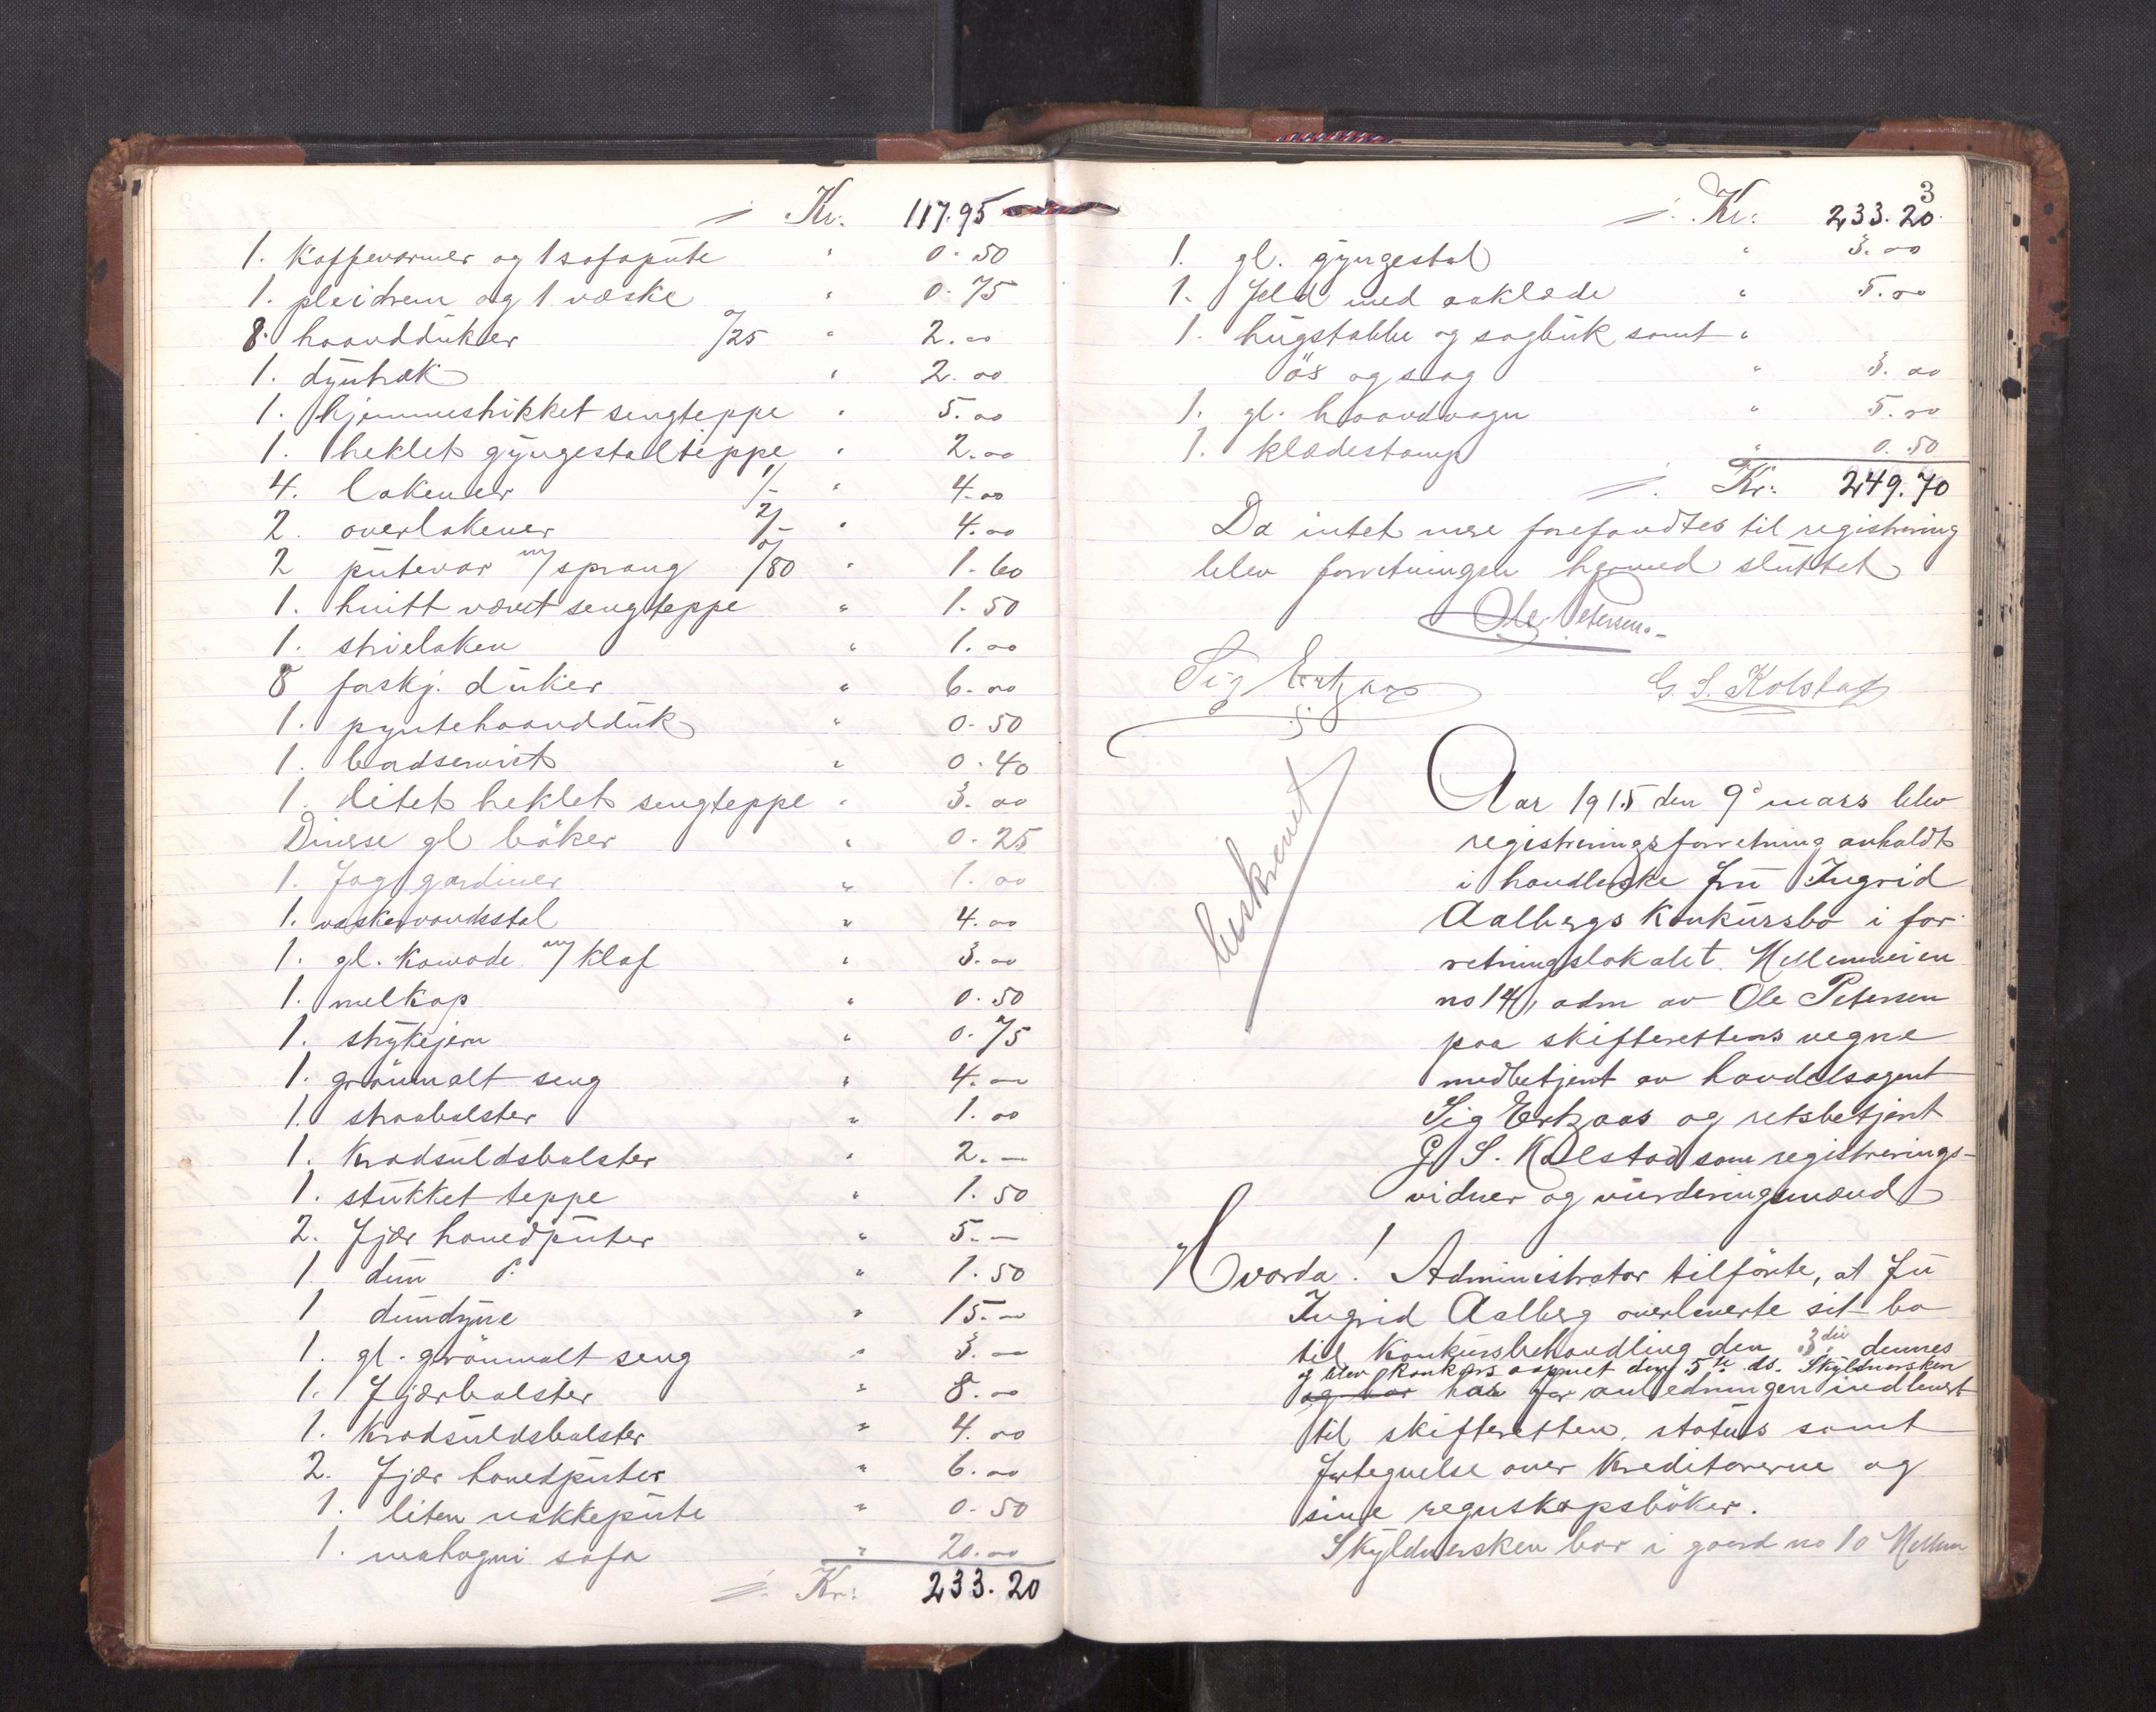 Kr. 117.95
1. Kaffevarmer og 1 sofapute " 0.50
1. pleidrem og 1 væske " 0.75
8. haandduker 0/25 " 2.00
1. dyntræk " 2.00
1. hjemmestrikket sengteppe " 5.00
1. heklet gyngestolteppe " 2.00
4. lakener 1/- " 4.00
2. overlakener 2/- " 4.00
2 putevar m/ sprang 0/80 " 1.60
1. hvitt vævet sengteppe " 1.50
1. strielaken " 1.00
8 forskj. duker " 6.00
1. pyntehaandduk " 0.50
1. bordserviet " 0.40
1. litet heklet sengteppe " 3.00
Diverse gl böker " 0.25
1. Fag gardiner " 1.00
1. vaskevandsstol " 4.00
1. gl. Komode m/ klaf " 3.00
1. melkop " 0.50
1. strykejern " 0.75
1. grönmalt seng " 4.—
1. straabolster " 1.00
1. Kradsuldsbolster " 2.—
1. stukket teppe " 1.50
2. Fjær hovedputer " 5.—
1. dun " 1.50
1 dundyne " 15.—
1. gl. grönmalt seng " 3.—
1. Fjærbolster " 8.00
1. Kradsuldsbolster " 4.00
2. Fjær hovedputer " 6.00
1. liten nakkepute " 0.50
1. mahogni sofa " 20.00
Kr: 233.20
3
Kr: 233.20
1. gl. gyngestol " 3.00
1. Feld med aaklæde " 5.00
1. hugstabbe og sagbuk samt "
öx og sag " 3.00
1. gl. haandvogn " 5.00
1. klædestamp " 0.50
Kr: 249.70
Da intet mere forefandtes til registrering
blev forretningen hermed sluttet
Ole Petersen
Sig Ertzaas
G. S. Kolstad
beskrevet
Aar 1915 den 9° mars blev
registreringsforretning avholdt
i handlerske Fru Ingrid
Aalbergs Konkursbo i for-
retningslokalet Mellemveien
no 14, adm av Ole Petersen
paa skifterettens vegne
medbetjent av handelsagent
Sig Ertzaas og retsbetjent
G. S. Kolstad som registrerings-
vidner og vurderingsmænd
Hvorda! Administrator tilförte, at Fru
Ingrid Aalberg overleverte sit bo
til Konkursbehandling den 3die dennes
og blev konkurs aapnet den 5te ds. Skyldnersken
og har har for anledningen indlevert
til skifteretten, status samt
Fortegnelse over Kreditorerne og
sine regnskapsböker.
Skyldnersken bor i gaard no 10 Mellem